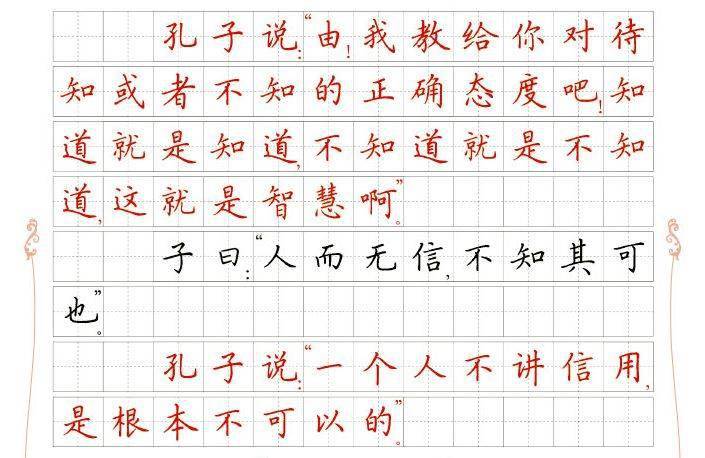 孔子说:“由!我教给你对待
知或者不知的正确态度吧!知
道就是知道,不知道就是不知
道,这就是智慧啊”。
子曰:“人而无信,不知其可
也”。
孔子说:“一个人不讲信用,
是根本不可以的”。